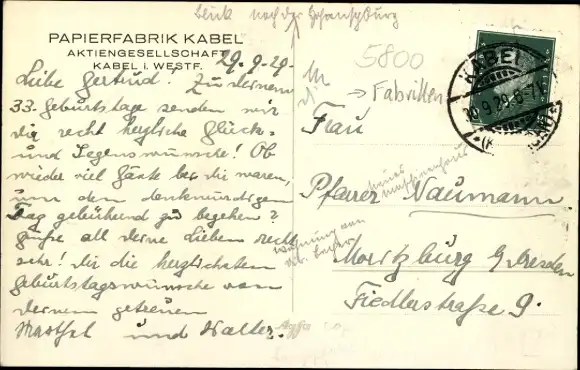 Blick nach der Hohensyburg
PAPIERFABRIK KABEL
AKTIENGESELLSCHAFT
KABEL i. WESTF.
29.9.29.
Liebe Gertrud! Zu deinem
33. Geburtstage senden wir
dir recht herzliche Glück-
und Segenswünsche! Ob
wieder viel Gäste bei dir waren,
um den denkwürdigen
Tag gebührend zu begehen?
Grüße all deine Lieben recht
sehr! Dir die herzlichsten
Geburtstagswünsche von
deinem getreuen
und Walter.
5800
→ Fabriken
KABEL
30.9.29.
Frau
Pfarrer Naumann
neues
Maschinenhaus
Wohnung von
Moritzburg b/Dresden
Fiedlerstraße 9.